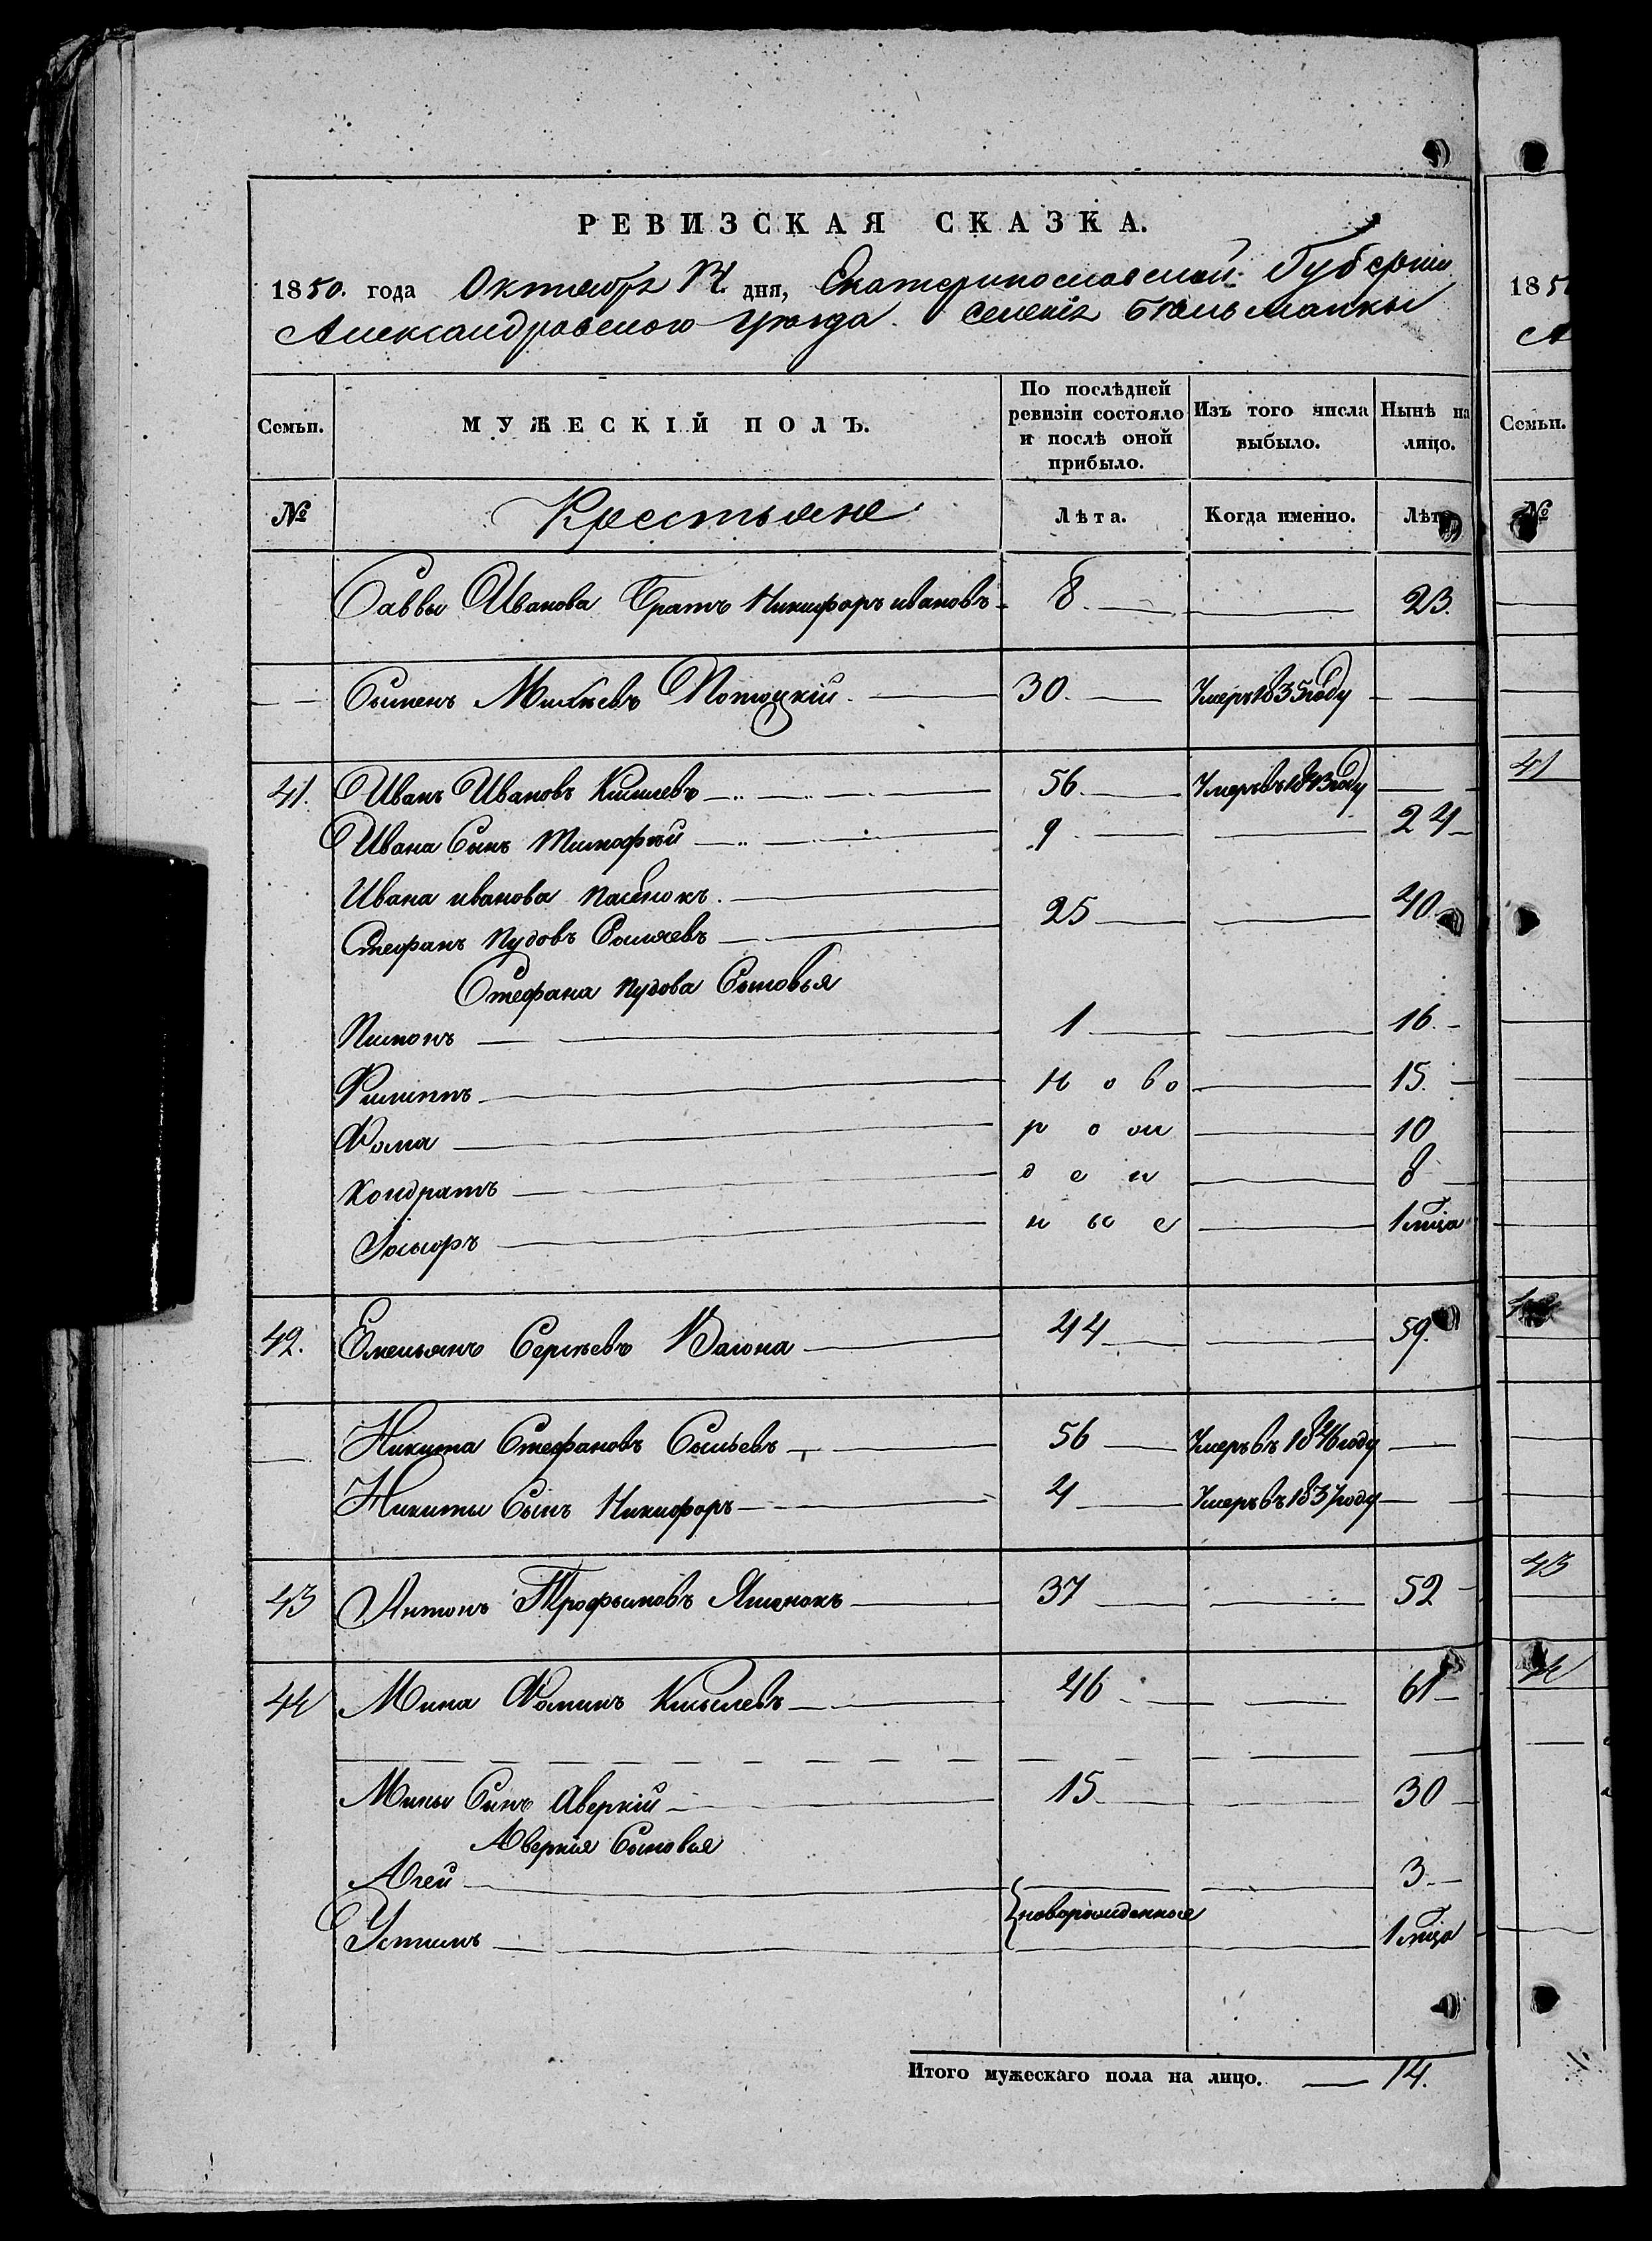 РЕВИЗСКАЯ СКАЗКА.
1850. года Октября дня, Екатеринославской Губернии
Александровского уезда. селенія Бѣльманки
Семьи. МУЖЕСКІЙ ПОЛЪ. По послѣдней ревизіи состояло и послѣ оной прибыло. Изъ того числа выбыло. Нынѣ на лицо.
№ Крестьяне Лѣта. Когда именно. Лѣта
Саввы Иванова Братъ Никифоръ ивановъ 8. 23.
Сыменъ Михѣевъ Потоцкій 30. Умеръ 1835 году
41. Иванъ Ивановъ Кисилевъ 56. Умеръ въ 1843 году
Ивана Сынъ Тимофѣй 9 24
Ивана иванова пасынокъ
Стефанъ Пудовъ 25 40
Стефана Пудова Сыновья
Пимонъ 1 16
Филиппъ ново 15.
Фома рож 10
Кондратъ ден 8
Іосыфъ ные 1 мѣца
42. Емельянъ Сергѣевъ Вагона 44 59.
Никита Стефановъ 56 Умеръ въ 1846 году
Никиты Сынъ Никифоръ 4 Умеръ въ 1837 году
43 Антонъ Трофымовъ 37 52
44 Мина Фоминъ Кисылевъ 46 61
Мины Сынъ Аверкій 15 30
Аверкія Сыновья
Агей 3
новорожденные
Устимъ 1 мѣца
Итого мужескаго пола на лицо. 14.
185
А
Семьи.
№
41
43
44